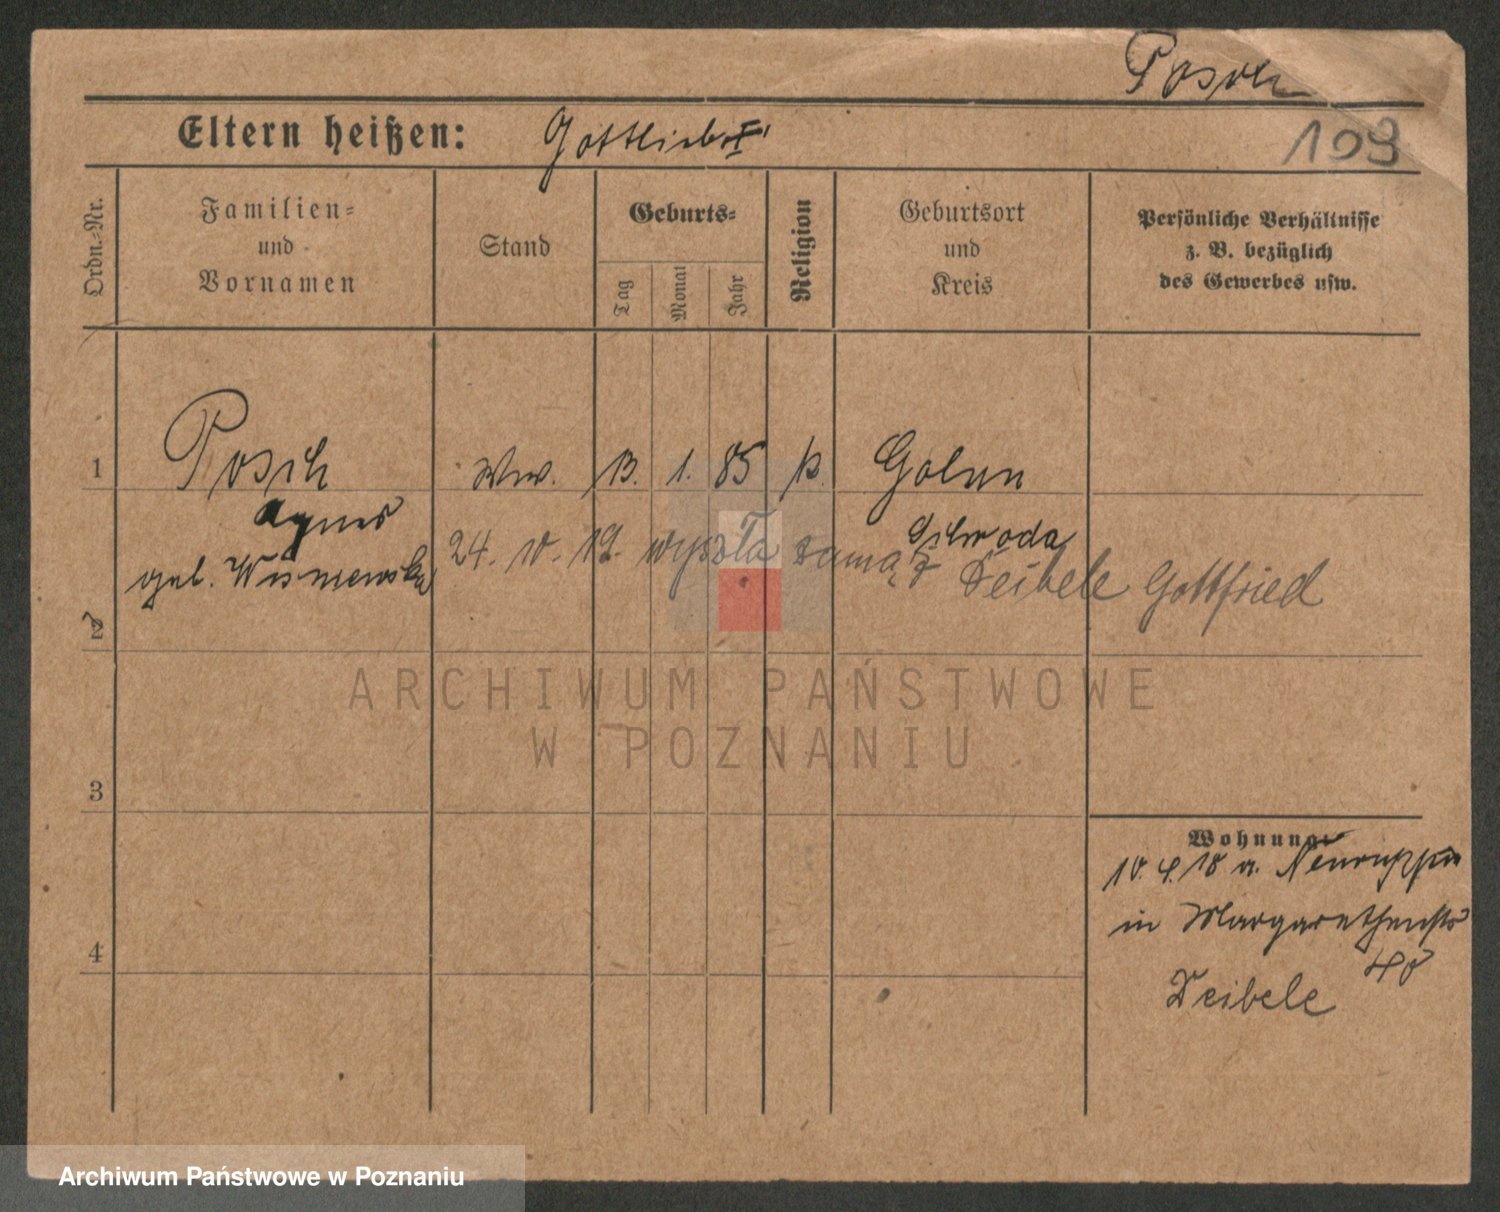 Posch
Eltern heißen: Gottlieb I
109
Ordn.-Nr.
Familien=
und
Vornamen
Stand
Geburts=
Tag
Monat
Jahr
Religion
Geburtsort
und
Kreis
Persönliche Verhältnisse
z. B. bezüglich
des Gewerbes usw.
1
Posch
Ww. 13. 1. 85 k. Golun
Agnes
Schroda
geb. Wisniewska
24. 10. 19. wyszła zamąż Deibele Gottfried
2
ARCHIWUM PAŃSTWOWE
W POZNANIU
3
Wohnung:
10. 4. 18 a. Neuruppin
in Margarethenstr
40
Deibele
4
Archiwum Państwowe w Poznaniu